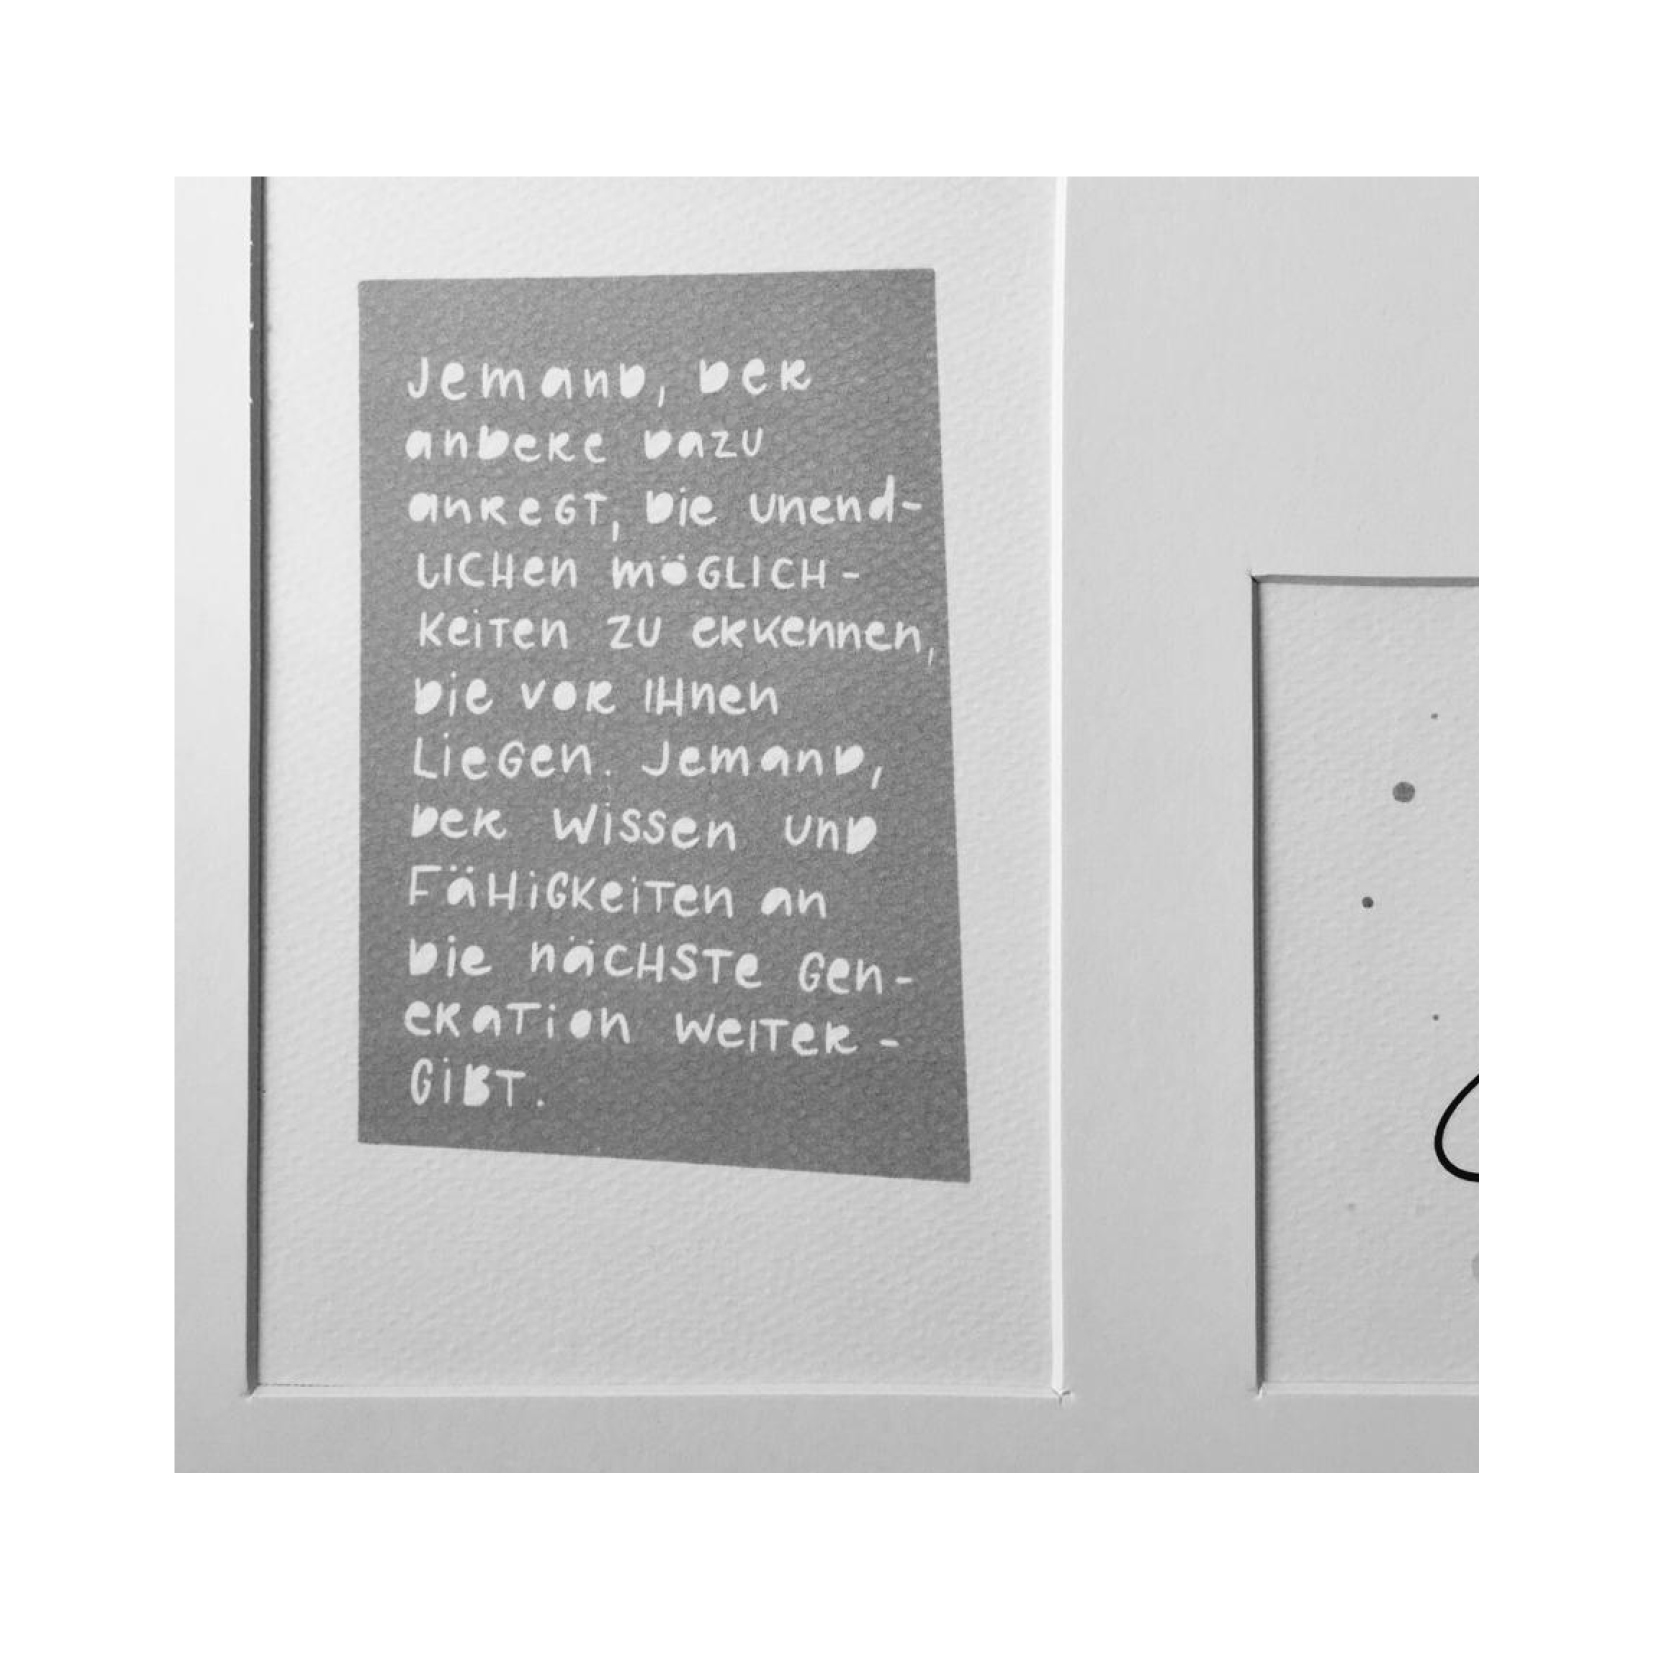 Jemand, der
andere dazu
anregt, die unend-
lichen möglich-
keiten zu erkennen,
die vor ihnen
liegen. Jemand,
der Wissen und
Fähigkeiten an
die nächste Gen-
eration weiter-
gibt.